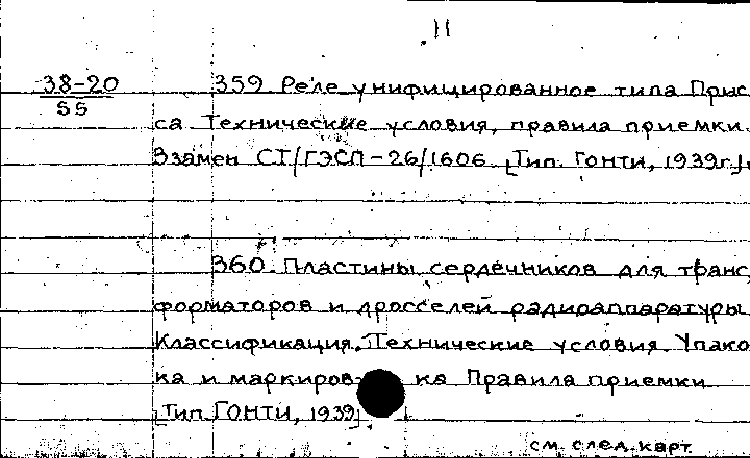 11
38-20 359 Реле унифицированное типа Прис
55
са Технические условия, правила приемки.
Взамен СТ/ГЭСП-26/1606 [Тип. ГОНТИ, 1939г.]
360. Пластины сердечников для транс
форматоров и дросселей радиоаппаратуры
Классификация. Технические условия Упаков
ка и маркиров ка Правила приемки
[Тип ГОНТИ, 1939]
см. след. карт.